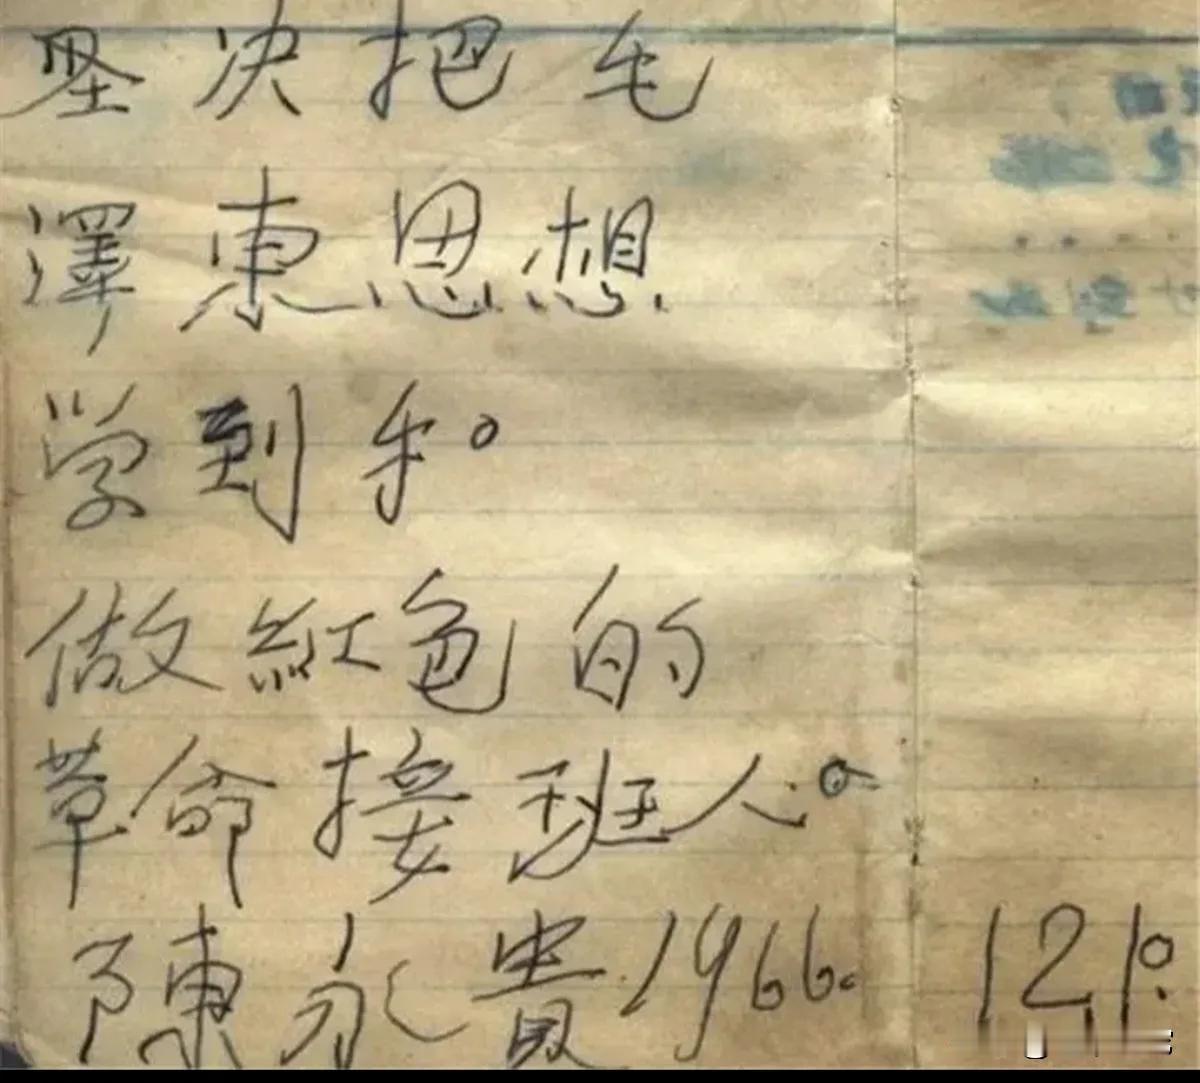 坚决把毛
澤東思想
学到手。
做紅色的
革命接班人。
陳永貴1966. 121.